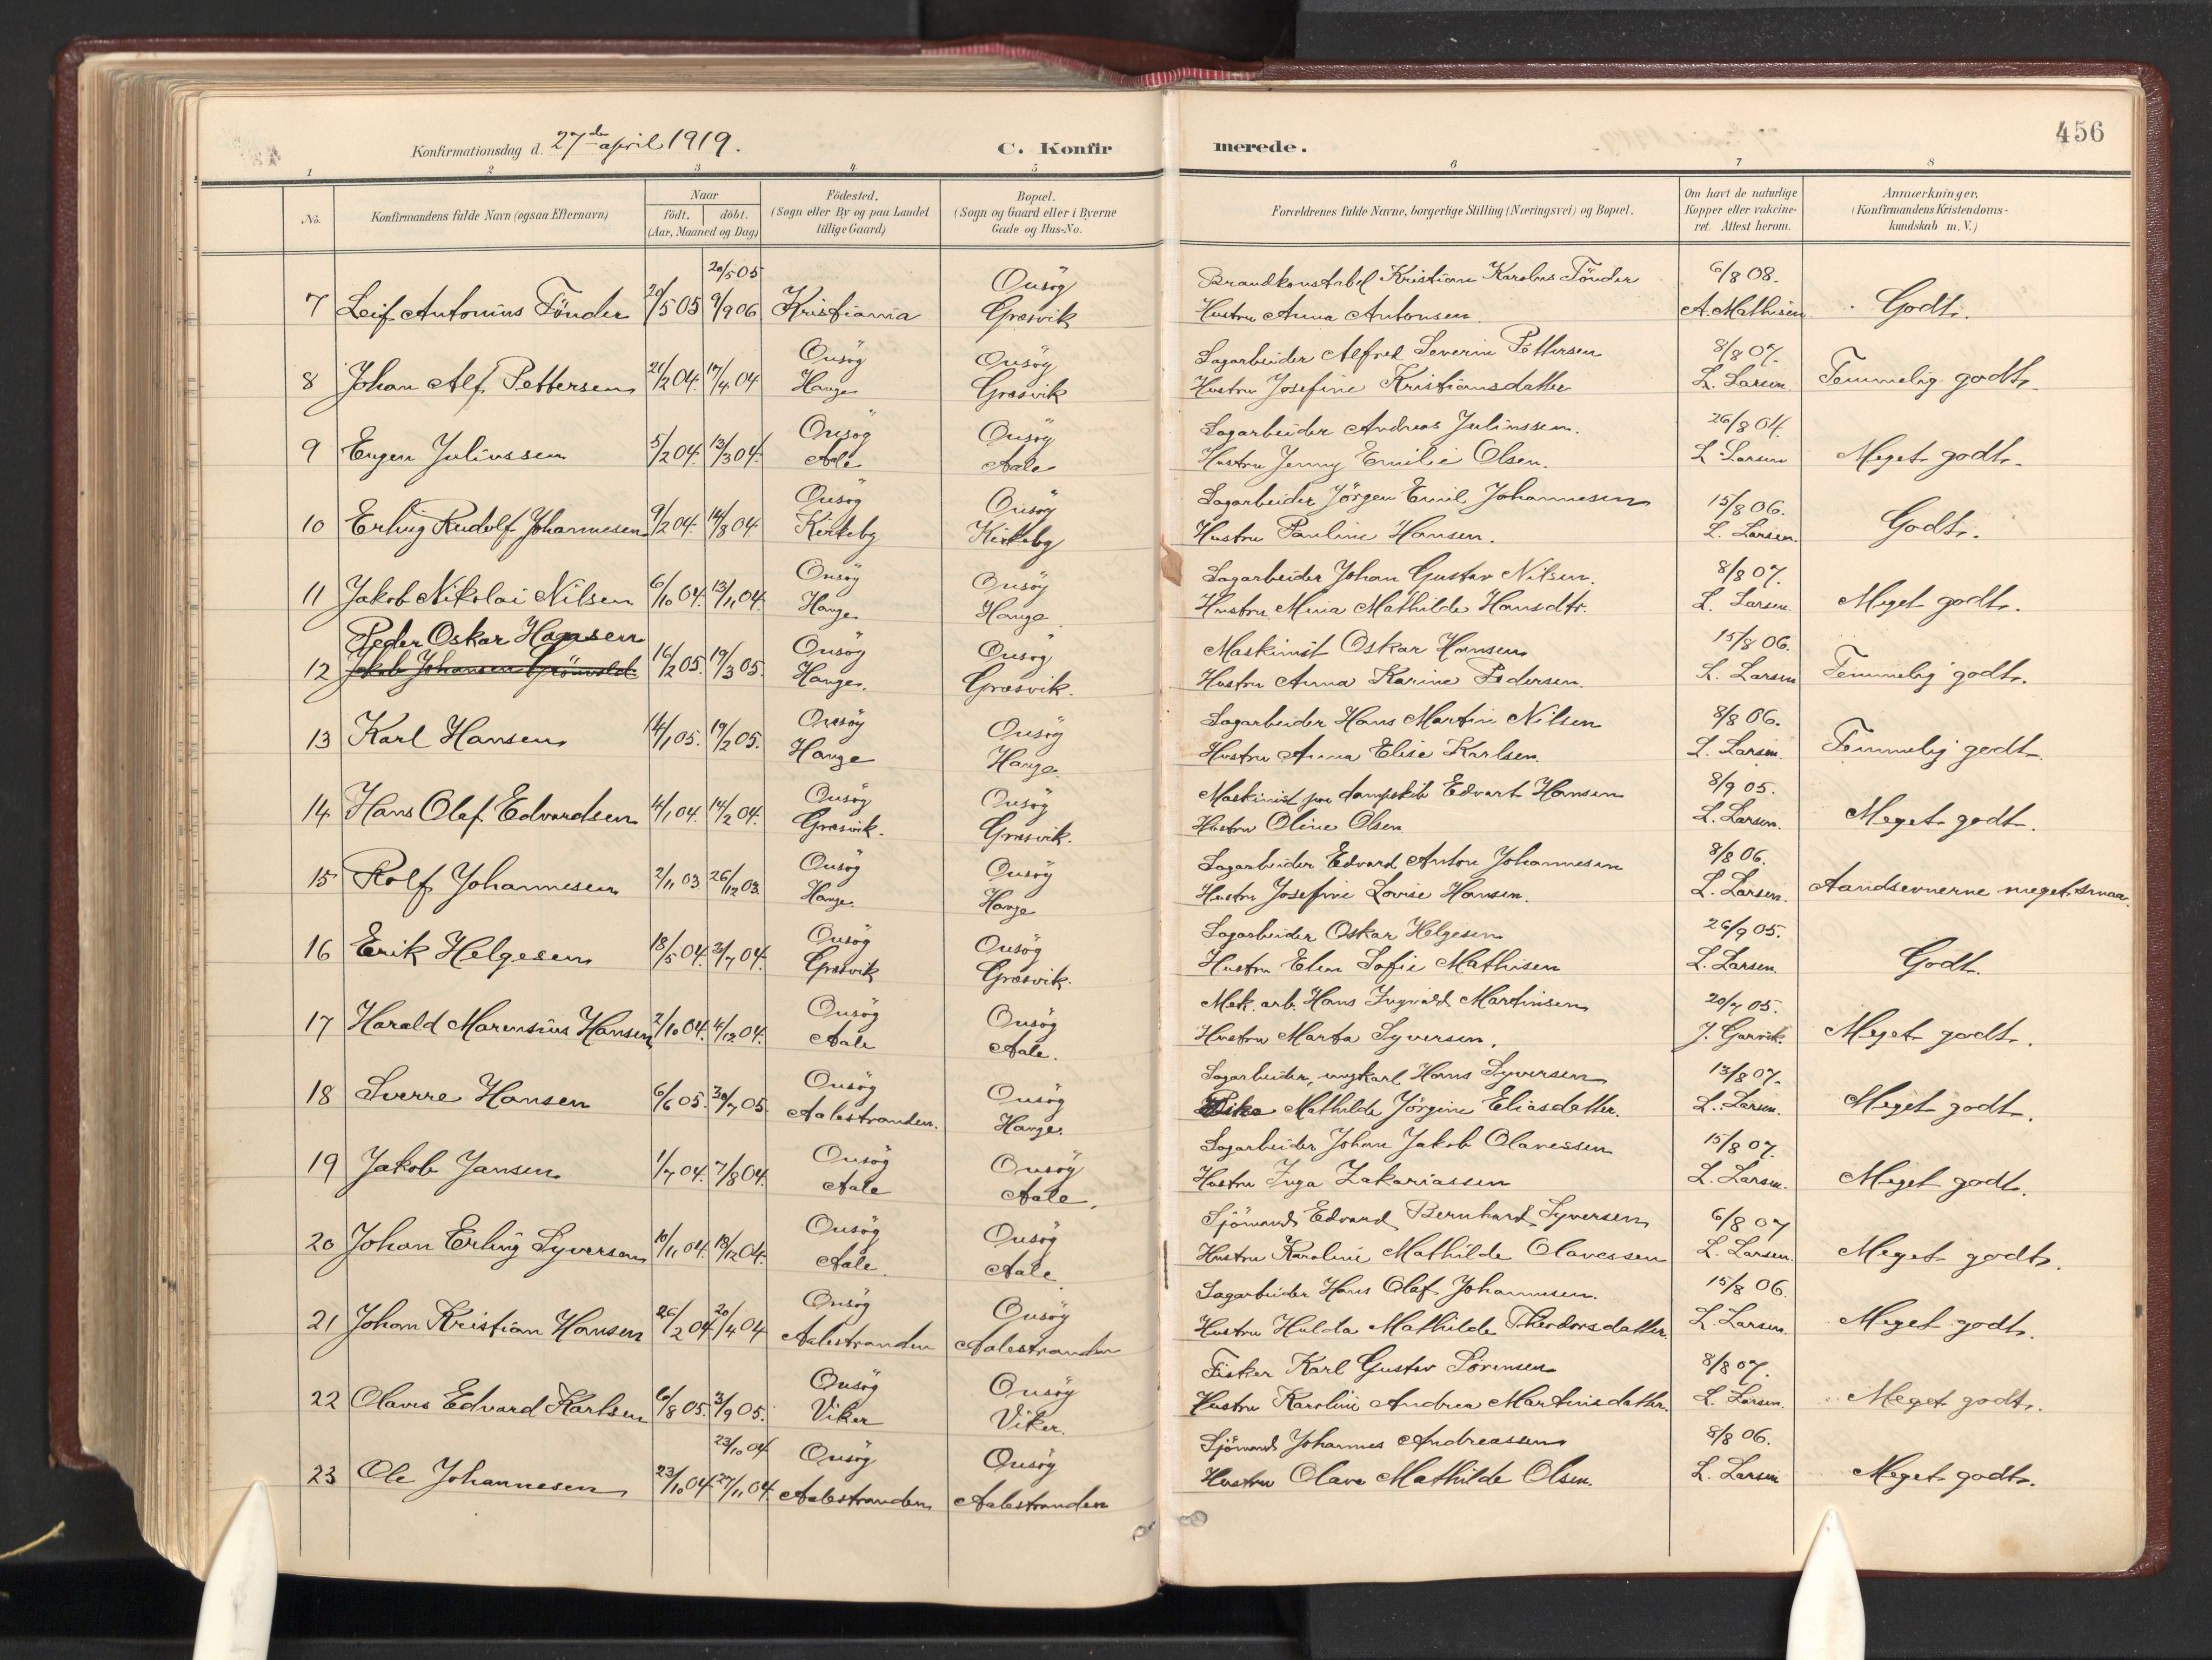 Konfirmationsdag d. 27de april 1919.
C. Konfirmerede.
456
1 2 3 4 5 6 7 8
No.
Konfirmandens fulde Navn (ogsaa Efternavn)
Naar
födt. döbt.
(Aar, Maaned og Dag)
Födested.
(Sogn eller By og paa Landet
tillige Gaard)
Bopæl.
(Sogn og Gaard eller i Byerne
Gade og Hus-No.
Forældrenes fulde Navne, borgerlige Stilling (Næringsvei) og Bopæl.
Om havt de naturlige
Kopper eller vakcine-
ret. Attest herom.
Anmærkninger,
(Konfirmandens Kristendoms-
kundskab m. V.)
20/5 05 Onsöy Brandkonstabel Kristian Karolus Tönder 6/8 08.
7 Leif Antonius Tönder 20/5 05 9/9 06 Kristiania Græsvik Hustru Anna Antonsen A. Mathisen Godt.
Onsöy Onsöy Sagarbeider Alfred Severin Pettersen 8/8 07.
8 Johan Alf Pettersen 21/2 04. 17/4 04 Hauge Græsvik Hustru Josefine Kristiansdatter L. Larsen. Temmelig godt.
Onsöy Onsöy Sagarbeider Andreas Juliussen. 26/8 04.
9 Eugen Juliussen 5/2 04. 13/3 04. Aale Aale Hustru Jenny Emilie Olsen. L. Larsen Meget godt.
Onsöy Onsöy Sagarbeider Jörgen Emil Johannesen 15/8 06.
10 Erling Rudolf Johannesen 9/2 04. 14/8 04. Kirkeby Kirkeby Hustru Pauline Hansen. L. Larsen. Godt.
Onsöy Onsöy Sagarbeider Johan Gustav Nilsen. 8/8 07.
11 Jakob Nikolai Nilsen 6/10 04. 13/11 04. Hauge Hauge Hustru Mina Mathilde Hansdtr. L. Larsen. Meget godt.
Peder Oskar Hansen Onsöy Onsöy Maskinist Oskar Hansen 15/8 06.
12 Jakob Johansen Grönvold 16/2 05. 19/3 05. Hauge. Græsvik. Hustru Anna Karine Pedersen. L. Larsen Temmelig godt.
Onsöy Onsöy Sagarbeider Hans Martin Nilsen 8/8 06.
13 Karl Hansen 14/1 05. 19/2 05. Hauge Hauge. Hustru Anna Elise Karlsen. L. Larsen. Temmelig godt
Onsöy Onsöy Maskinist paa dampskib Edvart Hansen 8/9 05.
14 Hans Olaf Edvardsen 4/1 04. 14/2 04. Græsvik. Græsvik. Hustru Oline Olsen L. Larsen. Meget godt.
Onsöy Onsöy Sagarbeider Edvard Anton Johannesen 8/8 06.
15 Rolf Johannesen 2/11 03 26/12 03. Hauge. Hauge Hustru Josefine Lovise Hansen. L. Larsen. Aandsevnerne meget smaa.
Onsöy Onsöy Sagarbeider Oskar Helgesen 26/9 05.
16 Erik Helgesen 18/5 04. 3/7 04. Græsvik Græsvik. Hustru Elen Sofie Mathisen L. Larsen. Godt.
Onsöy Onsöy Mek. arb. Hans Ingvald Martinsen 20/7 05.
17 Harald Marensius Hansen 2/10 04. 4/12 04. Aale Aale. Hustru Marta Syversen. J. Garvik. Meget godt.
Onsöy Onsöy Sagarbeider, ungkarl Hans Syversen 13/8 07.
18 Sverre Hansen 6/6 05. 30/7 05. Aalestranden. Hauge. Pike Mathilde Jörgine Eliasdatter. L. Larsen. Meget godt.
Onsöy Onsöy Sagarbeider Johan Jakob Olavessen 15/8 07.
19 Jakob Jansen 1/7 04. 7/8 04. Aale Aale. Hustru Inga Zakariassen L. Larsen. Meget godt.
Onsöy Onsöy Sjömand Edvard Bernhard Syversen 6/8 07
20 Johan Erling Syversen 10/11 04. 18/12 04. Aale. Aale Hustru Karoline Mathilde Olavessen L. Larsen. Meget godt.
Onsöy Onsöy Sagarbeider Hans Olaf Johannesen. 15/8 06.
21 Johan Kristian Hansen 26/2 04 20/4 04 Aalestranden Aalestranden Hustru Hulda Mathilde Theodorsdatter. L. Larsen. Meget godt.
Onsöy Onsöy Fisker Karl Gustav Sörensen 8/8 07.
22 Olaves Edvard Karlsen 6/8 05. 3/9 05. Viker Viker. Hustru Karoline Andrea Martinsdatter. L. Larsen. Meget godt.
23/10 04 Onsöy Onsöy Sjömand Johannes Andreassen 8/8 06.
23 Ole Johannesen 23/10 04 27/11 04. Aalestranden Aalestranden Hustru Olava Mathilde Olsen. L. Larsen Meget godt.